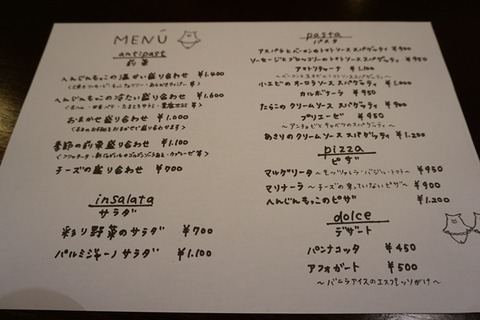 MENÙ
antipast
前菜
へんじんもっこの温かい盛り合わせ ¥1.400
へんじんもっこの冷たい盛り合わせ ¥1.600
おまかせ盛り合わせ ¥1.000
季節の前菜盛り合わせ ¥1.100
チーズの盛り合わせ ¥700
insalata
サラダ
彩り野菜のサラダ ¥700
パルミジャーノサラダ ¥1.100
pasta
パスタ
アスパラとベーコンのトマトソース スパゲッティ ¥900
ソーセージとブロッコリーのトマトソース スパゲッティ ¥900
アマトリチャーナ ¥1.100
小エビのオーロラソース スパゲッティ ¥1.000
カルボナーラ ¥950
たらこのクリームソース スパゲッティ ¥900
プリエーゼ ¥950
〜アンチョビとキャベツのスパゲッティ〜
あさりのクリームソース スパゲッティ ¥1.200
pizza
ピザ
マルゲリータ 〜モッツァレラ・バジル・トマト〜 ¥950
マリナーラ 〜チーズの乗っていないピザ〜 ¥900
へんじんもっこのピザ ¥1.200
dolce
デザート
パンナコッタ ¥450
アフォガート ¥500
〜バニラアイスのエスプレッソがけ〜